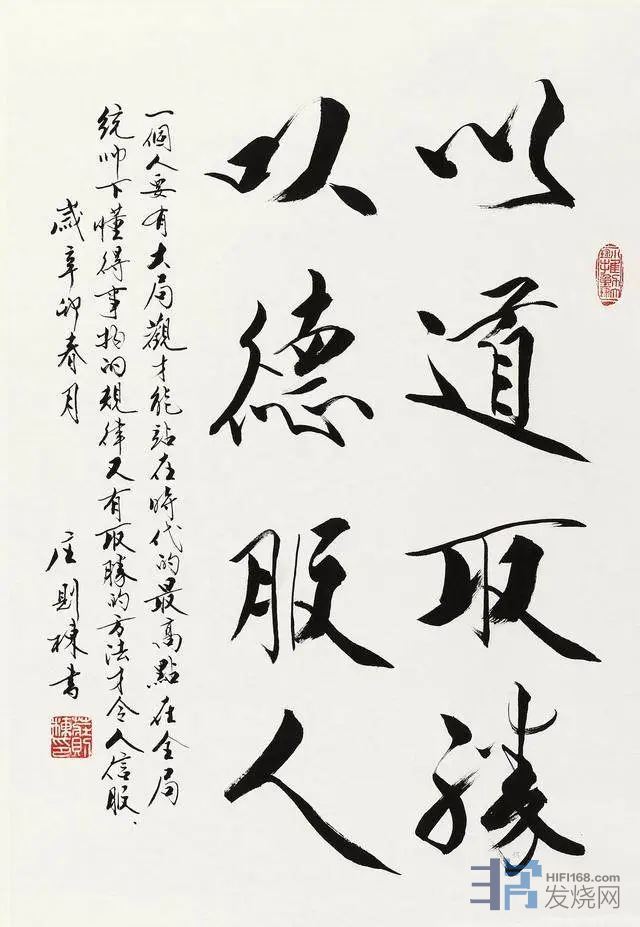 以道取勝
以德服人
一個人要有大局觀才能站在時代的最高點在全局
統帅下懂得事物的規律又有取勝的方法才令人信服.
歲辛卯春月
庄則棟書
莊則棟印
HIFI168.com
发烧网